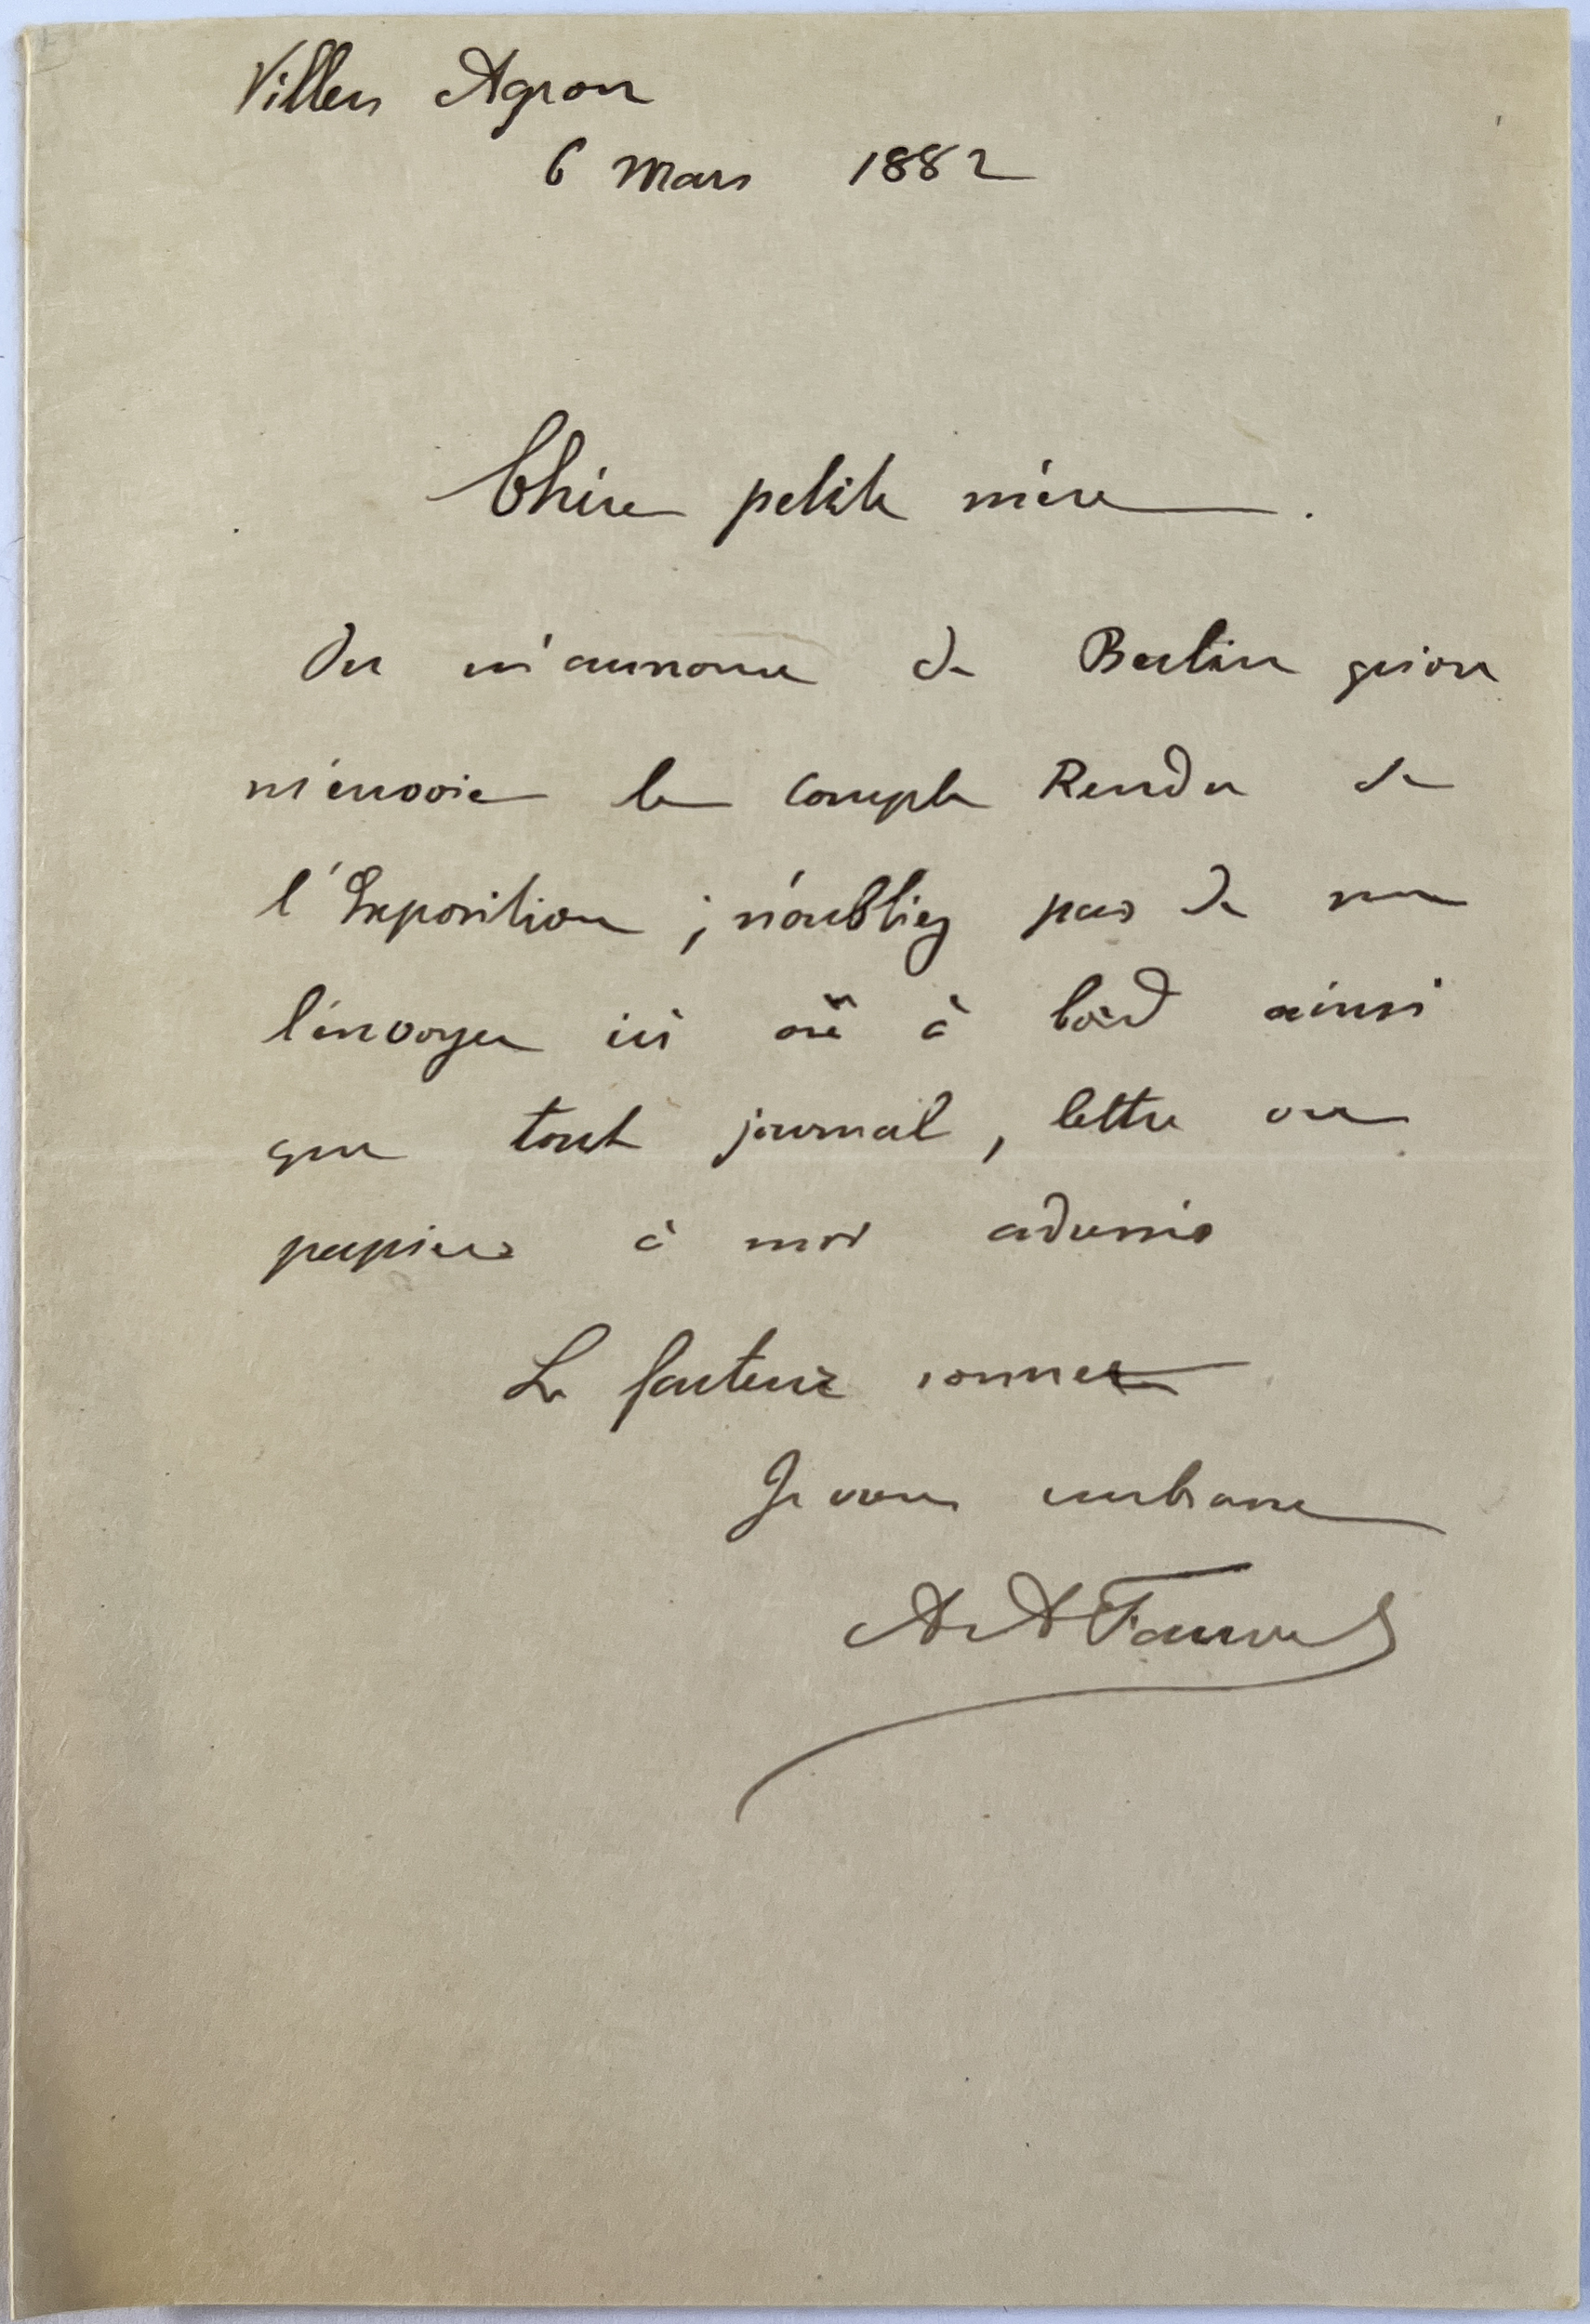 Villers Agron
6 Mars 1882
Chère petite mère.
On m'annonce de Berlin qu'on
m'envoie le Compte Rendu de
l'Exposition ; n'oubliez pas de me
l'envoyer ici où à bord ainsi
que tout journal, lettre ou
papiers à moi adressés
Le facteur sonne
Je vous embrasse
A. A. Fauvel